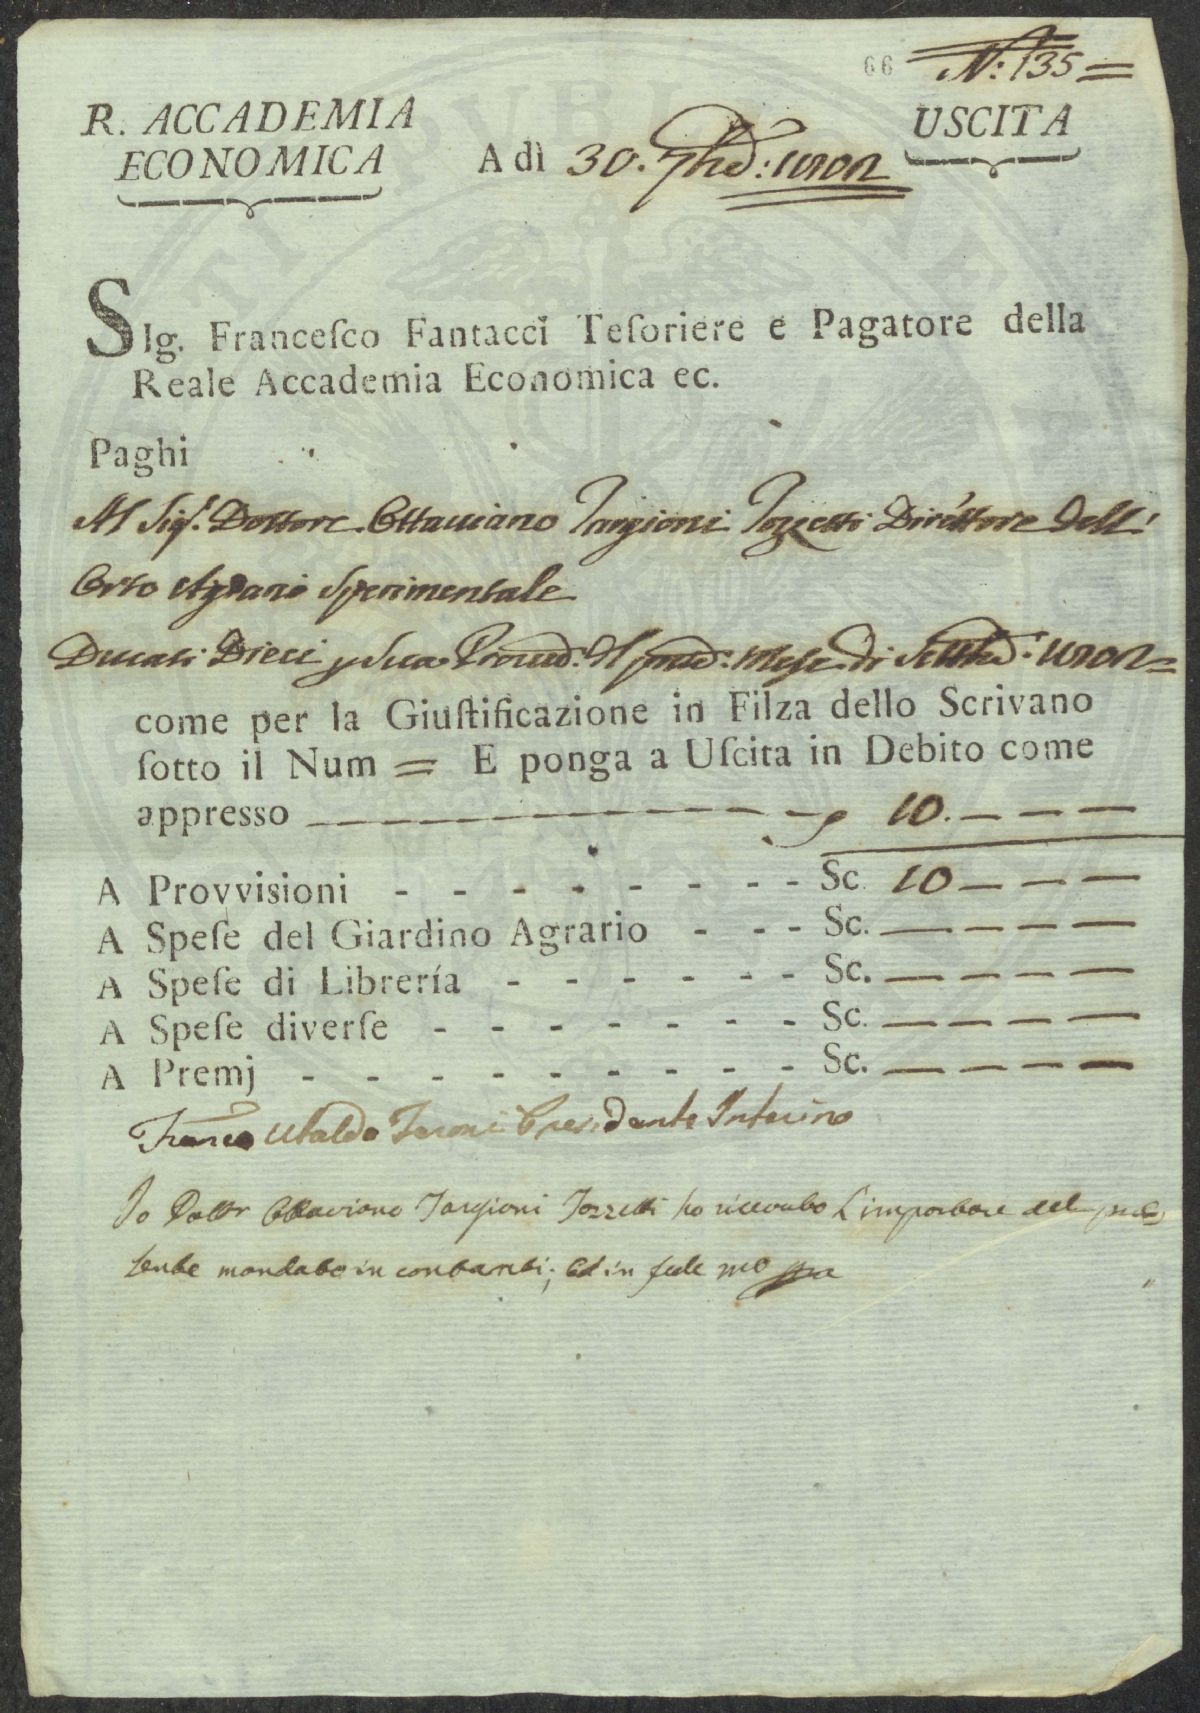 66 N: 135=
R. ACCADEMIA
ECONOMICA
A dì 30. 7bre: 1802
USCITA
SIg. Franceſco Fantacci Teſoriere e Pagatore della
Reale Accademia Economica ec.
Paghi
Al Sigr. Dottore Ottaviano Targioni Tozzetti Direttore dell'
Orto Agrario Sperimentale
Ducati Dieci p Sua Provvd: del pnte: mese di Settbe: 1802=
come per la Giuſtificazione in Filza dello Scrivano
ſotto il Num = E ponga a Uſcita in Debito come
appresso — 10. — — —
A Provviſioni - - - - - - - - Sc. 10 — — —
A Speſe del Giardino Agrario - - - Sc. — — — —
A Speſe di Librería - - - - - - Sc. — — — —
A Speſe diverſe - - - - - - - Sc. — — — —
A Premj - - - - - - - - - Sc. — — — —
Franco Ubaldo Feroni Presidente Interino
Io Dottr Ottaviano Targioni Tozzetti ho ricevuto L'importare del pre=
sente mandato in contanti; ed in fede mo ppa